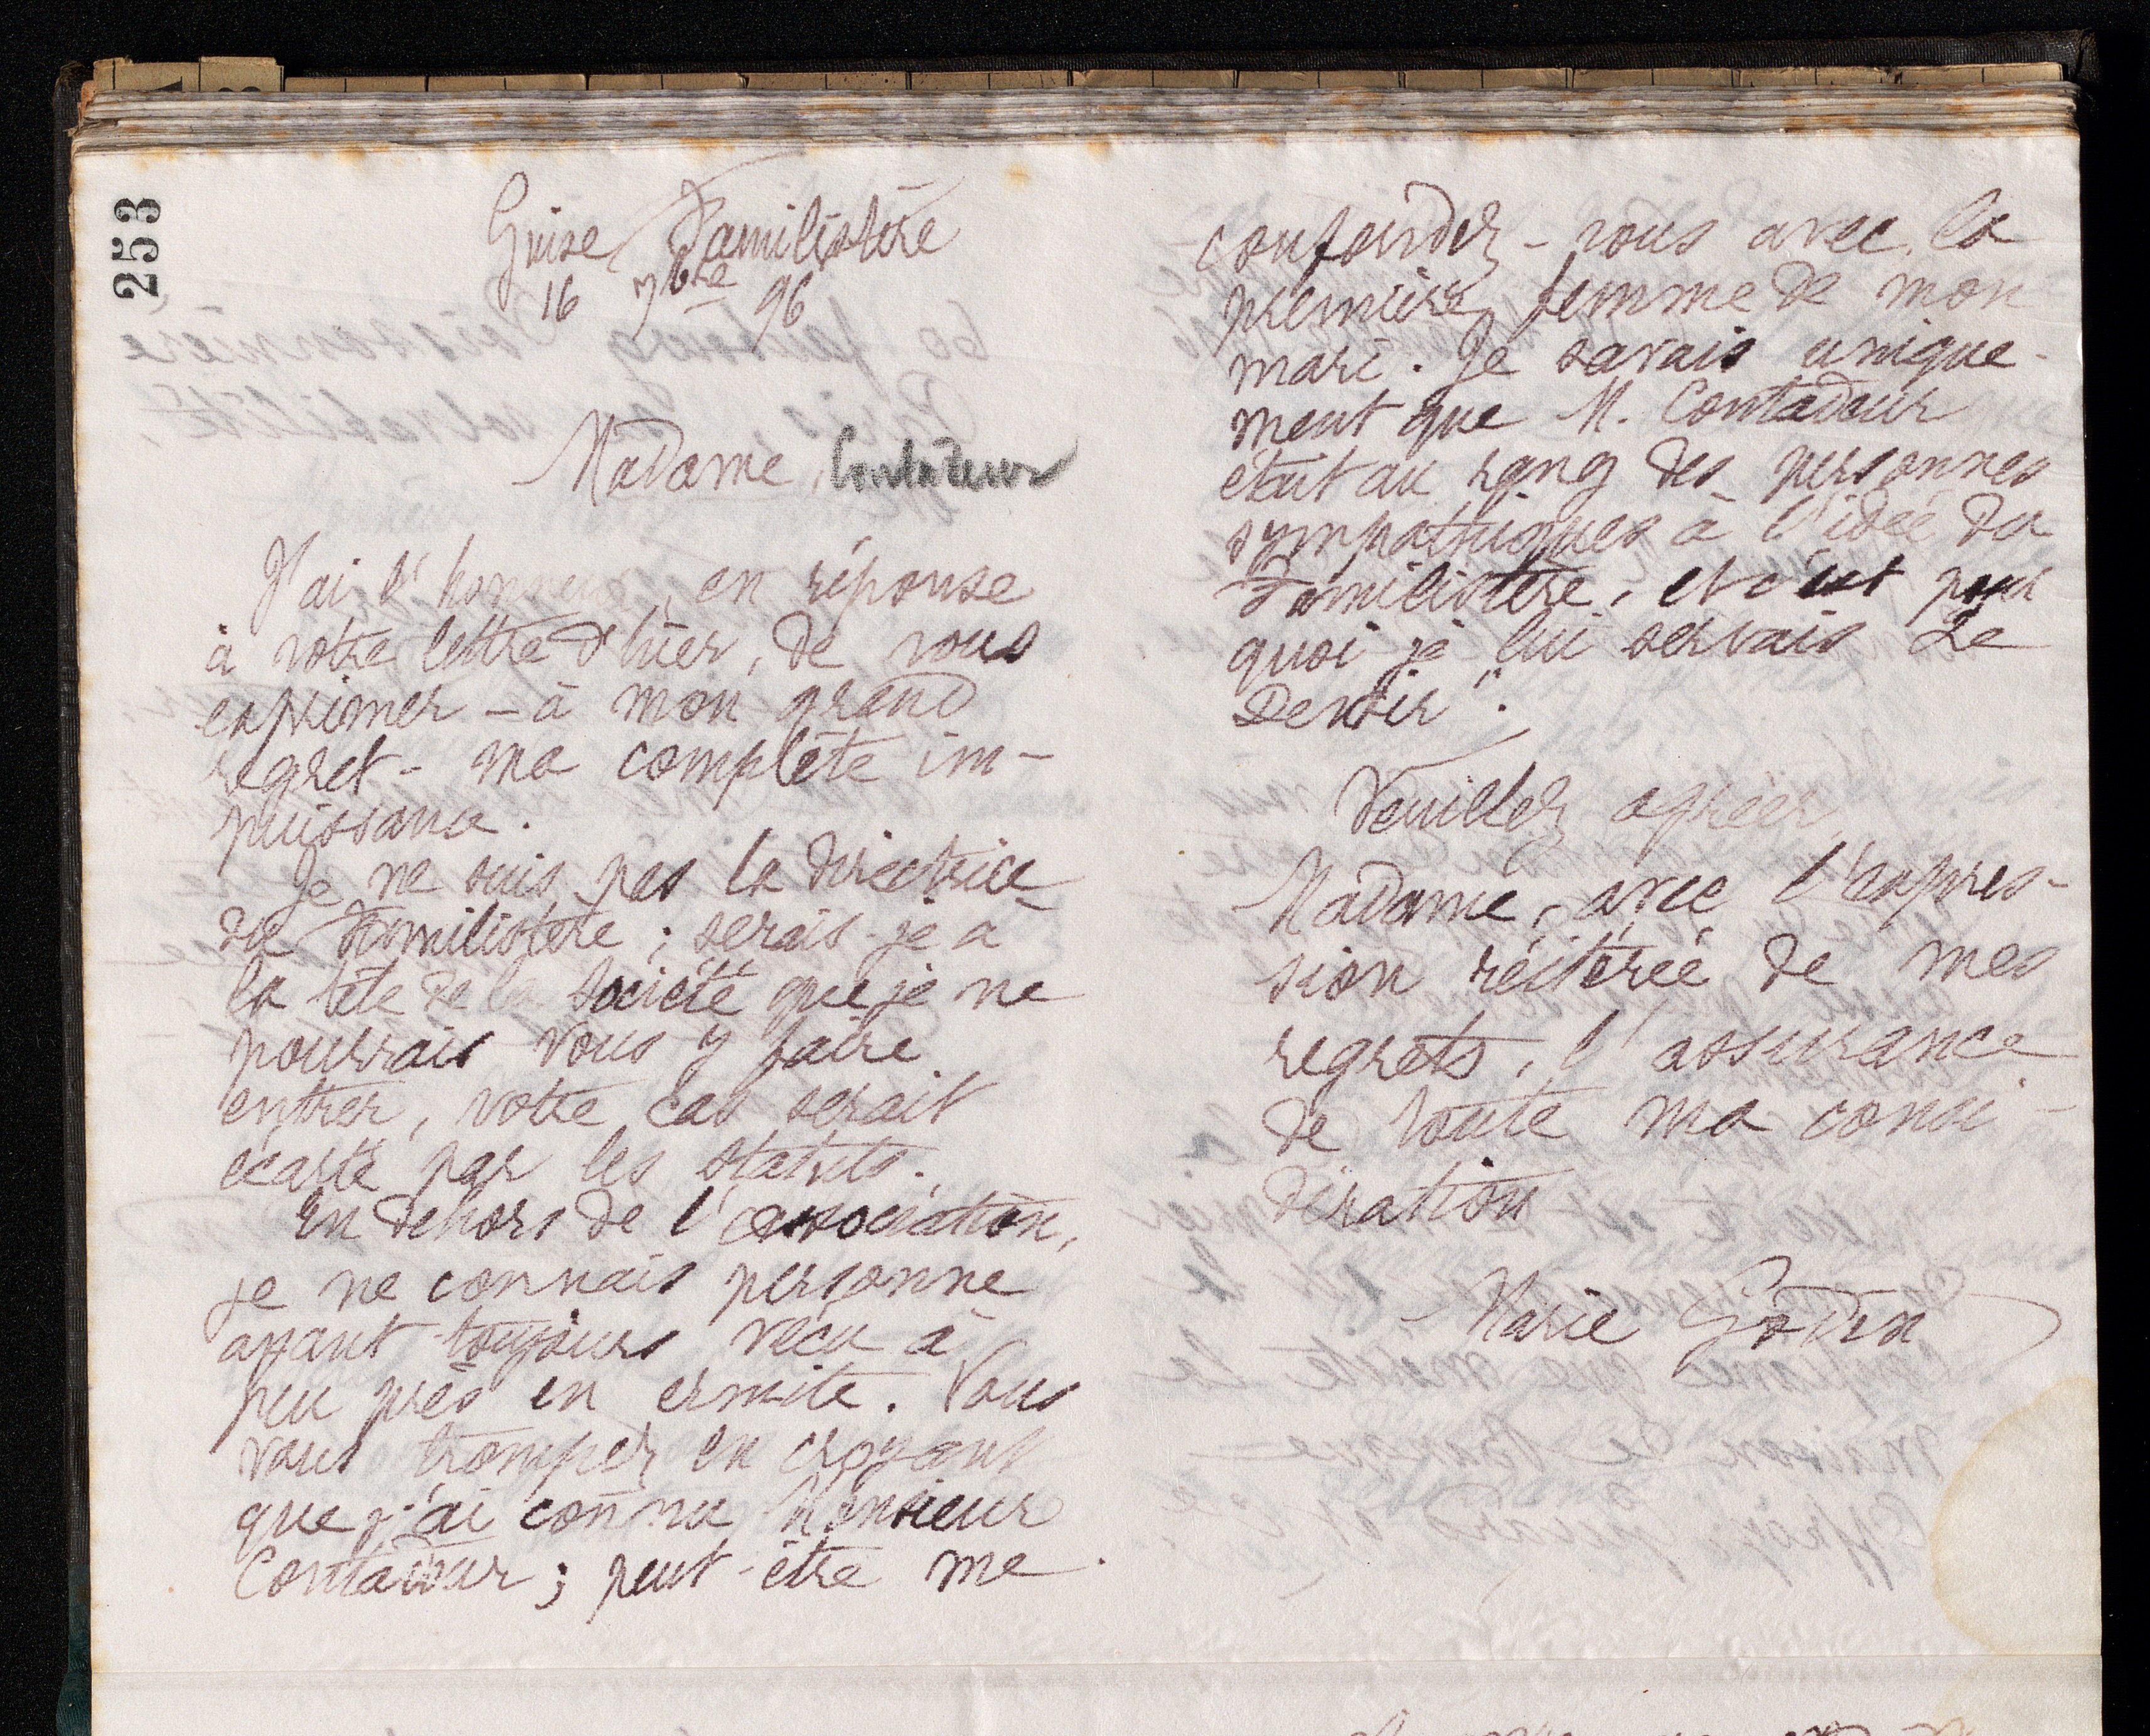 253
Guise Familistère
16 7bre 96
Madame, Contadour
J'ai l'honneur, en réponse
à votre lettre d'hier, de vous
exprimer - à mon grand
regret - ma complète im-
puissance.
Je ne suis pas la directrice
du Familistère ; serais-je à
la tête de la Société que je ne
pourrais vous y faire
entrer, votre cas serait
écarté par les statuts.
En dehors de l'association,
je ne connais personne
ayant toujours vécu à
peu près en ermite. Vous
vous trompez en croyant
que j'ai connu Monsieur
Contadour ; peut-être me
confondez-vous avec la
première femme de mon
mari. Je savais unique-
ment que M. Contadour
était au rang des personnes
sympathiques à l'idée du
Familistère, et c'est pour
quoi je lui servais Le
Devoir".
Veuillez agréer,
Madame, avec l'expres-
sion réitérée de mes
regrets, l'assurance
de toute ma consi-
dération
Marie Godin